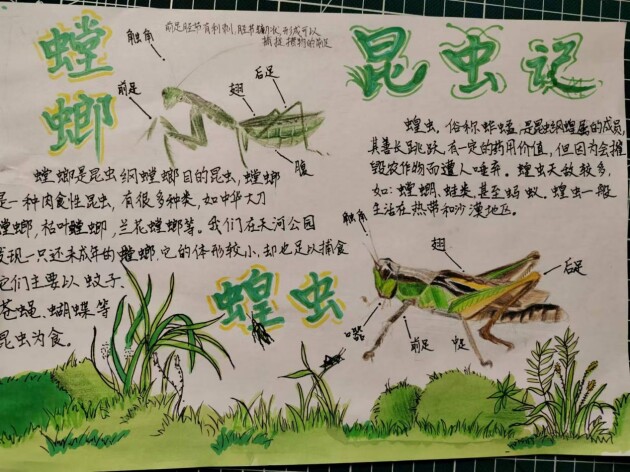 昆虫记
螳螂
前足胫节有利刺,胫节镰状,形成可以
捕捉猎物的前足
触角
前足
翅
后足
腹
螳螂是昆虫纲螳螂目的昆虫,螳螂
是一种肉食性昆虫,有很多种类,如中华大刀
螳螂,枯叶螳螂,兰花螳螂等。我们在天河公园
发现一只还未成年的螳螂,它的体形较小,却也足以捕食
它们主要以蚊子、
苍蝇、蝴蝶等
昆虫为食。
蝗虫
蝗虫,俗称蚱蜢,是昆虫纲蝗属的成员,
其善长跳跃,有一定的药用价值,但因为会摧
毁农作物而遭人唾弃。蝗虫天敌极多,
如:螳螂、蛙类,甚至蚂蚁。蝗虫一般
生活在热带和沙漠地区。
触角
翅
后足
前足
中足